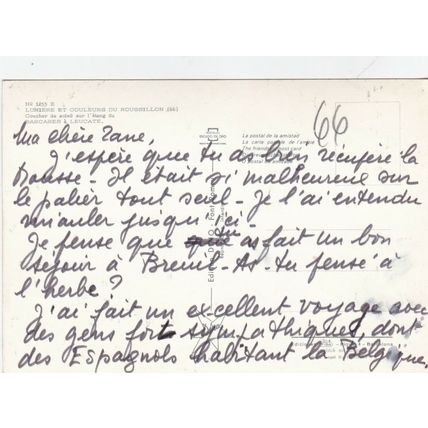 HR 1255 E
LUMIERE ET COULEURS DU ROUSSILLON (66)
Coucher de soleil sur l'étang du
BARCARES à LEUCATE.
La postal de la amistad
La carte postale de l'amitié
The friendship post card
66
Ma chère Zane,
J'espère que tu as bien récupéré la
Mousse. Il était si malheureux sur
le palier tout seul. Je l'ai entendu
miauler jusqu'ici.
Je pense que tu as fait un bon
séjour à Breuil. As-tu pensé à
l'herbe ?
J'ai fait un excellent voyage avec
des gens fort sympathiques, dont
des Espagnols habitant la Belgique,